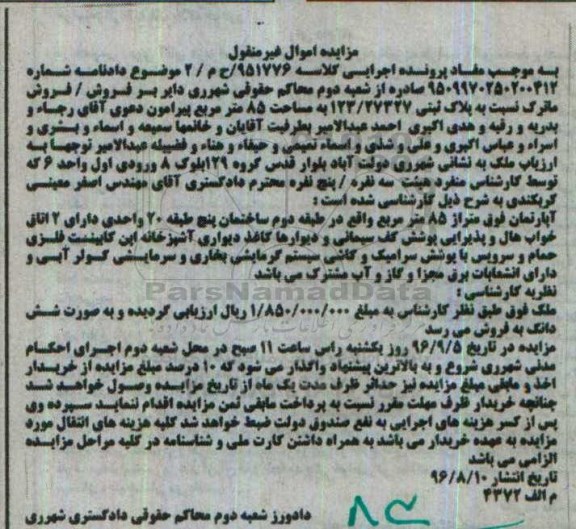 مزایده اموال غیرمنقول
به موجب مفاد پرونده اجرایی کلاسه ۹۵۱۷۷۶/ح م / ۲ موضوع دادنامه شماره
۹۵۰۹۹۷۰۲۵۰۲۰۰۴۱۲ صادره از شعبه دوم محاکم حقوقی شهرری دایر بر فروش / فروش
ماترک نسبت به پلاک ثبتی ۱۲۳/۲۷۳۲۷ به مساحت ۸۵ متر مربع پیرامون دعوی آقای رجاء و
بدریه و رقیه و هدی اکبری احمد عبدالامیر بطرفیت آقایان و خانمها سمیعه و اسماء و بشری و
اسراء و عباس اکبری و علی و شذی و اسماء تمیمی و حیفاء و هناء و فضیله عبدالامیر توجها به
ارزیاب ملک به نشانی شهرری دولت آباد بلوار قدس گروه ۱۲۹بلوک ۸ ورودی اول واحد ۶ که
توسط کارشناس منفرد هیئت سه نفره / پنج نفره محترم دادگستری آقای مهندس اصغر معینی
گربکندی به شرح ذیل کارشناسی شده است :
آپارتمان فوق متراژ ۸۵ متر مربع واقع در طبقه دوم ساختمان پنج طبقه ۲۰ واحدی دارای ۲ اتاق
خواب هال و پذیرایی پوشش کف سیمانی و دیوارها کاغذ دیواری آشپزخانه اپن کابینت فلزی
حمام و سرویس با پوشش سرامیک و کاشی سیستم گرمایشی بخاری و سرمایشی کولر آبی و
دارای انشعابات برق مجزا و گاز و آب مشترک می باشد
نظریه کارشناسی :
ملک فوق طبق نظر کارشناس به مبلغ ۱/۸۵۰/۰۰۰/۰۰۰ ریال ارزیابی گردیده و به صورت شش
دانگ به فروش می رسد
مزایده در تاریخ ۹۶/۹/۵ روز یکشنبه راس ساعت ۱۱ صبح در محل شعبه دوم اجرای احکام
مدنی شهرری شروع و به بالاترین پیشنهاد واگذار می شود که ۱۰ درصد مبلغ مزایده از خریدار
اخذ و مابقی مبلغ مزایده نیز حداکثر ظرف مدت یک ماه از تاریخ مزایده وصول خواهد شد
چنانچه خریدار ظرف مهلت مقرر نسبت به پرداخت مابقی ثمن مزایده اقدام ننماید سپرده وی
پس از کسر هزینه های اجرایی به نفع صندوق دولت ضبط خواهد شد کلیه هزینه های انتقال مورد
مزایده به عهده خریدار می باشد به همراه داشتن کارت ملی و شناسنامه در کلیه مراحل مزایده
الزامی می باشد
تاریخ انتشار ۹۶/۸/۱۰
م الف ۴۳۷۲
دادورز شعبه دوم محاکم حقوقی دادگستری شهرری
ParsNamadData